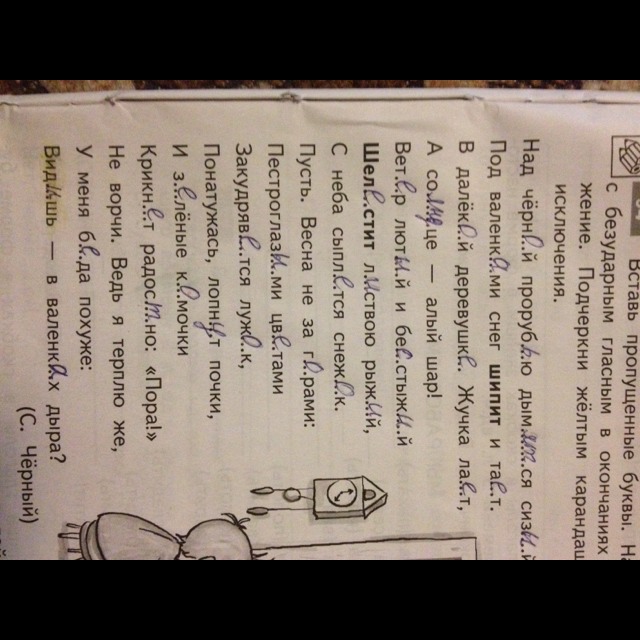 Вставь пропущенные буквы.
с безударным гласным в окончаниях
жение. Подчеркни жёлтым карандаш
исключения.
Над чёрно.й прорубь.ю дымят.ся сизы.й
Под валенка.ми снег шипит и тае.т.
В далёко.й деревушке. Жучка лае.т,
А солн.це — алый шар!
Вете.р люты.й и бес.стыжи.й
Шеле.стит ли.ствою рыжи.й,
С неба сыпле.тся снежо.к.
Пусть. Весна не за го.рами:
Пестроглазы.ми цве.тами
Закудряве.тся лужо.к,
Понатужась, лопну.т почки,
И зе.лёные ко.мочки
Крикне.т радост.но: «Пора!»
Не ворчи. Ведь я терплю же,
У меня бе.да похуже:
Види.шь — в валенка.х дыра?
(С. Чёрный)